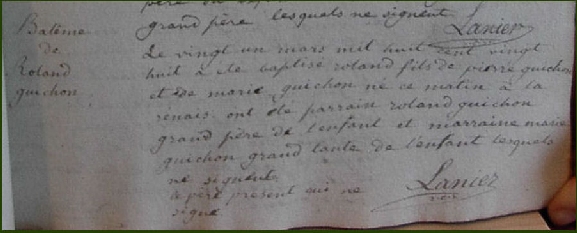 grand père lesquels ne signent
Lanier
Batême
de
Roland
guichon
Le vingt un mars mil huit cent vingt
huit à été baptisé roland fils de pierre guichon
et de marie guichon né ce matin à la
ont été parrain roland guichon
grand père de l'enfant et marraine marie
guichon grand tante de l'enfant lesquels
ne signent
le père présent qui ne
signe
Lanier